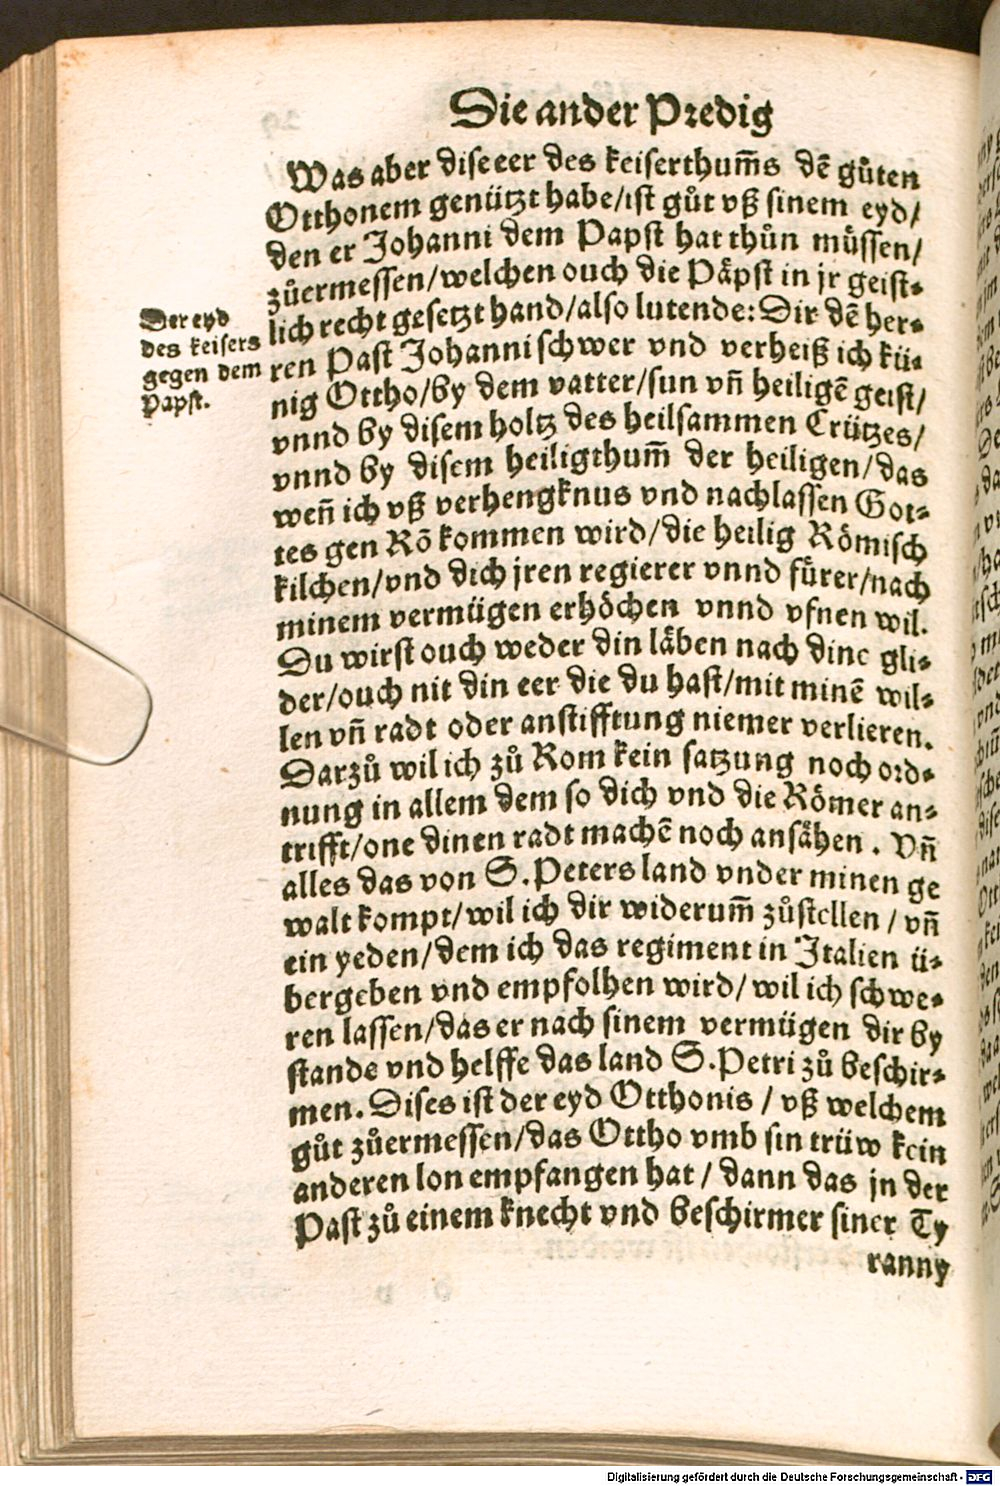 Die ander Predig
Was aber dise eer des keiserthum̃s dē gůten
Otthonem genützt habe/ist gůt vß sinem eyd/
den er Johanni dem Papst hat thůn müssen/
zůermessen/welchen ouch die Päpst in jr geist⸗
lich recht gesetzt hand/also lutende: Dir dē her⸗
ren Past Johanni schwer vnd verheiß ich kü⸗
nig Ottho/by dem vatter/sun vñ heiligē geist/
vnnd by disem holtz des heilsammen Crützes/
vnnd by disem heiligthum̃ der heiligen/das
weñ ich vß verhengknus vnd nachlassen Got⸗
tes gen Rō kommen wird/die heilig Römisch
kilchen/vnd dich jren regierer vnnd fürer/nach
minem vermügen erhöchen vnnd vfnen wil.
Du wirst ouch weder din läben nach dine gli⸗
der/ouch nit din eer die du hast/mit minē wil⸗
len vñ radt oder anstifftung niemer verlieren.
Darzů wil ich zů Rom kein satzung noch ord⸗
nung in allem dem so dich vnd die Römer an⸗
trifft/one dinen radt machē noch ansähen . Vñ
alles das von S.Peters land vnder minen ge
walt kompt/wil ich dir widerum̃ zůstellen / vñ
ein yeden/dem ich das regiment in Italien ü⸗
bergeben vnd empfolhen wird/ wil ich schwe⸗
ren lassen/das er nach sinem vermügen dir by
stande vnd helffe das land S.Petri zů beschir⸗
men. Dises ist der eyd Otthonis / vß welchem
gůt zůermessen/das Ottho vmb sin trüw kein
anderen lon empfangen hat / dann das jn der
Past zů einem knecht vnd beschirmer siner Ty
ranny
Der eyd
des keisers
gegen dem
Papst.
Digitalisierung gefördert durch die Deutsche Forschungsgemeinschaft - DFG